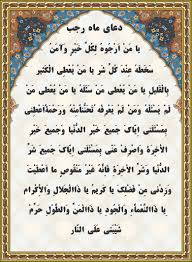 دعای ماه رجب
یا مَنْ اَرْجُوهُ لِكُلِّ خَیْرٍ وَآمَنُ
سَخَطَهُ عِنْدَ كُلِّ شَرٍّ یا مَنْ یُعْطِی الْكَثیرَ
بِالْقَلیلِ یا مَنْ یُعْطی مَنْ سَئَلَهُ یا مَنْ یُعْطی
مَنْ لَمْ یَسْئَلْهُ وَمَنْ لَمْ یَعْرِفْهُ تَحَنُّناً مِنْهُ وَرَحْمَةً اَعْطِنی
بِمَسْئَلَتی اِیّاكَ جَمیعَ خَیْرِ الدُّنْیا وَجَمیعَ خَیْرِ
الاْخِرَةِ وَاصْرِفْ عَنّی بِمَسْئَلَتی اِیّاكَ جَمیعَ شَرِّ
الدُّنْیا وَشَرِّ الاْخِرَةِ فَاِنَّهُ غَیْرُ مَنْقُوصٍ ما اَعْطَیْتَ
وَزِدْنی مِنْ فَضْلِكَ یا كَریمُ یا ذَاالْجَلالِ وَالاْكْرامِ
یا ذَاالنَّعْماءِ وَالْجُودِ یا ذَاالْمَنِّ وَالطَّوْلِ حَرِّمْ
شَیْبَتی عَلَی النّارِ